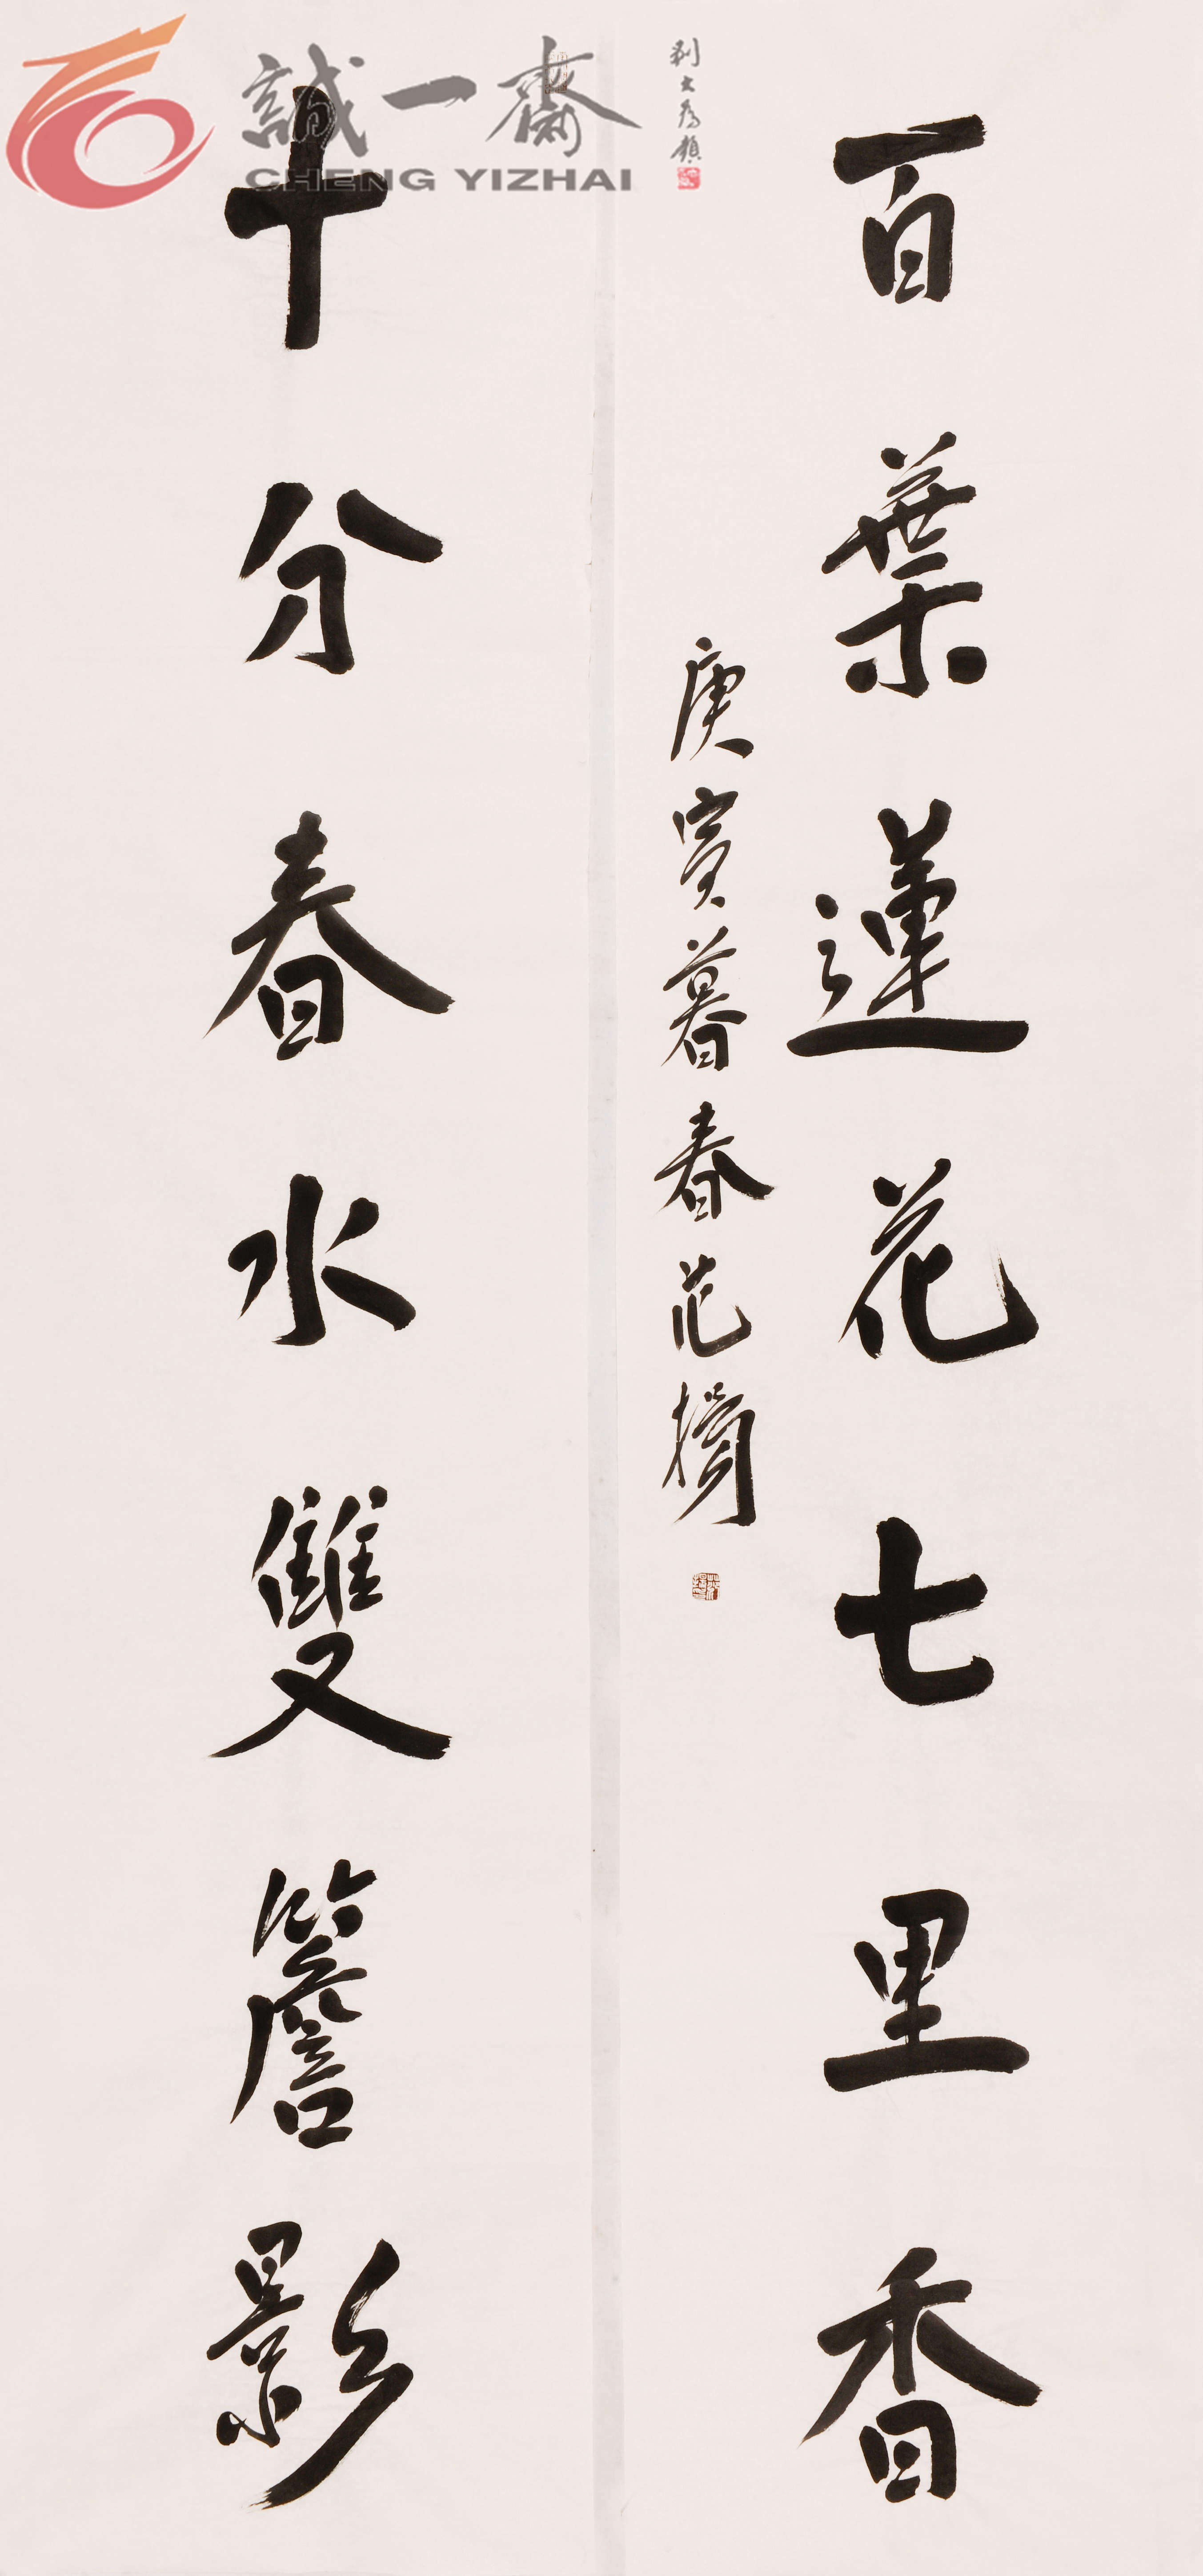 百葉蓮花七里香
庚寅暮春范擴
十分春水雙簷影
劉大為題
誠一齋
CHENG YIZHAI